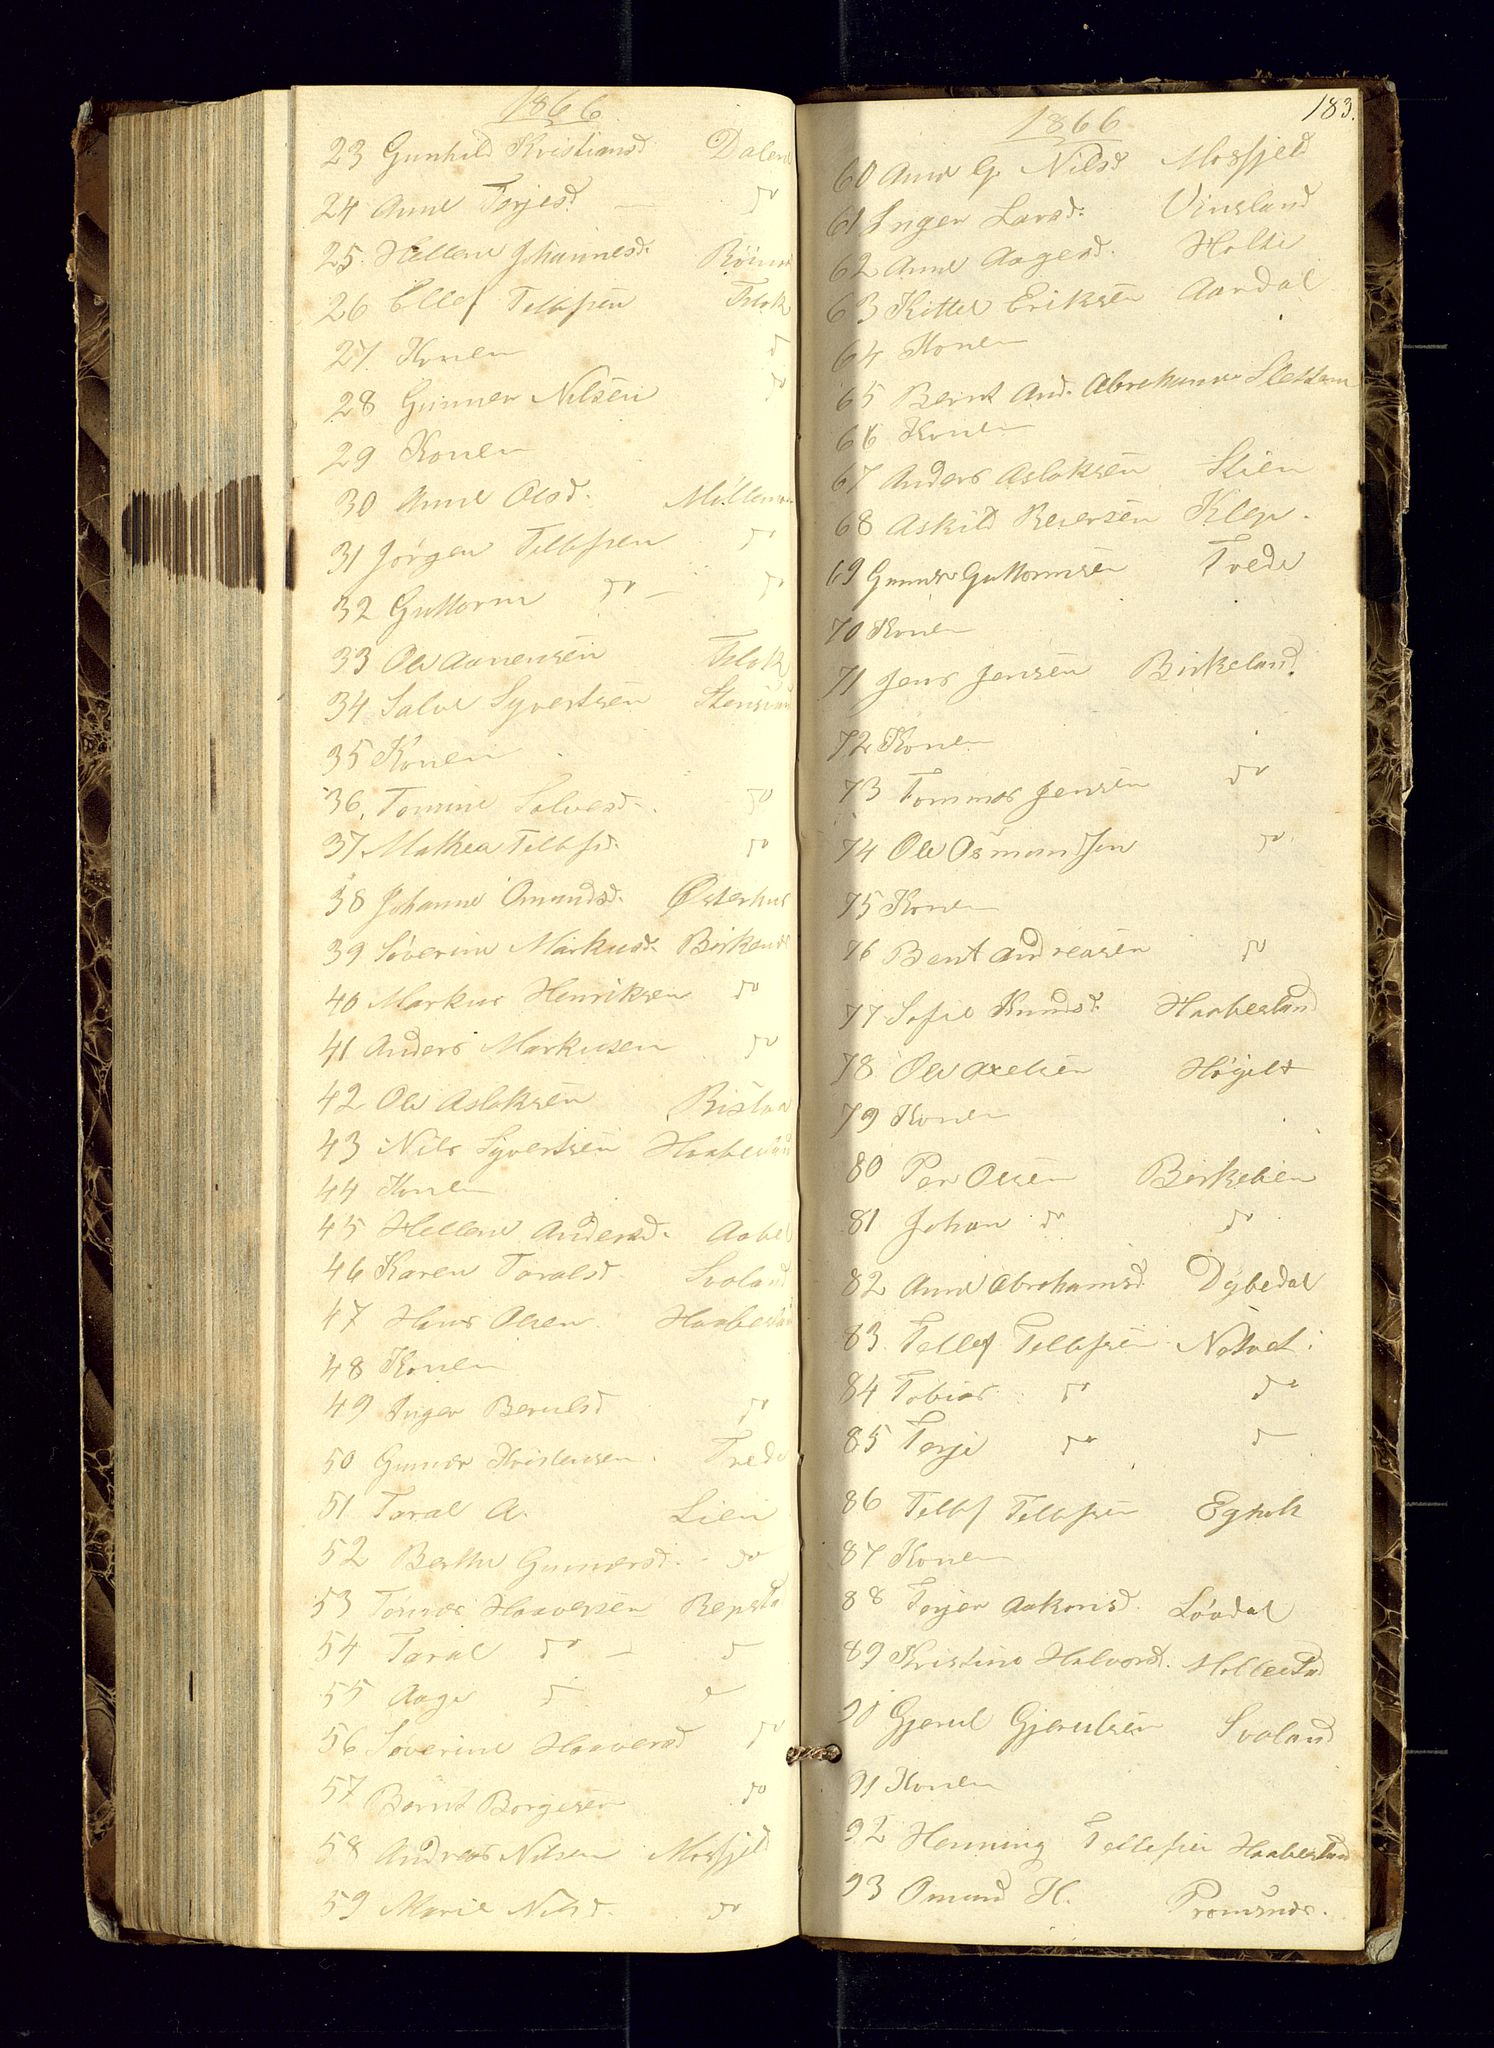 1866
23 Gunhild Kristiansd Dalen
24 Anne Torjesd. — do
25. Hellene Johannesd.
26 Ellef Tellefsen Flak
27. Konen do
28 Gunner Nilsen do
29 Konen
30 Anne Olsd.
31 Jörgen Tellefsen do
32 Guttorm do — do
33 Ole Aanensen Flak
34 Salve Syvertsen
35 Konen
36. Tomine Salvesd. do
37 Mathea Tellefsd. do
38 Johanne Omundsd. Østerhus
39 Söverine Markusd.
40 Markus Henriksen do
41 Anders Markusen do
42 Ole Aslaksen
43 Nils Syvertsen Haabesland
44 Konen
45 Hellene Andersd. Aabel
46 Karen Taralsd. Svaland
47 Hans Olsen. Haabesland
48 Konen
49 Inger Berulsd do
50 Gunner Kristensen. Trede
51 Taral A. Lien
52 Berthe Gunnersd. - do
53 Tomas Haaversen Repstad
54 Taral do — do
55 Aage do do
56 Söverine Haaversd do
57 Börnt Borgesen do
58 Andreas Nilsen Mosfjeld
59 Marie Nilsd. do
183.
1866
60 Anne G. Nilsd Mosfjeld
61 Inger Larsd. Vinsland
62 Anne Aagesd. Holte
63 Kittel Eriksen Aardal
64 Konen
65 Bernt And. Abrahamsen
66 Konen
67 Anders Aslaksen
68 Askild Reiersen Klep.
69 Gunner Guttormsen Trede
70 Konen
71 Jens Jensen Birkeland.
72 Konen
73 Tommas Jensen do
74 Ole Osmundsen do
75 Konen
76 Bent Andreasen do
77 Sofie Knudsd. Haabesland
78 Ole Axelsen Högelt
79 Konen
80 Per Olsen Birkelien
81 Johan do do
82 Anne Abrahamsd. Dybedal
83. Tellef Tellefsen Natvet.
84 Tobias do do
85 Terje do do
86 Tellef Tellefsen
87 Konen
88 Torjer Aakonsd. Lövdal
89 Kristine Halvorsd.
90 Gjerul Gjerulsen Svaland
91 Konen
92 Henning Tellefsen Haabesland
93 Omund H.